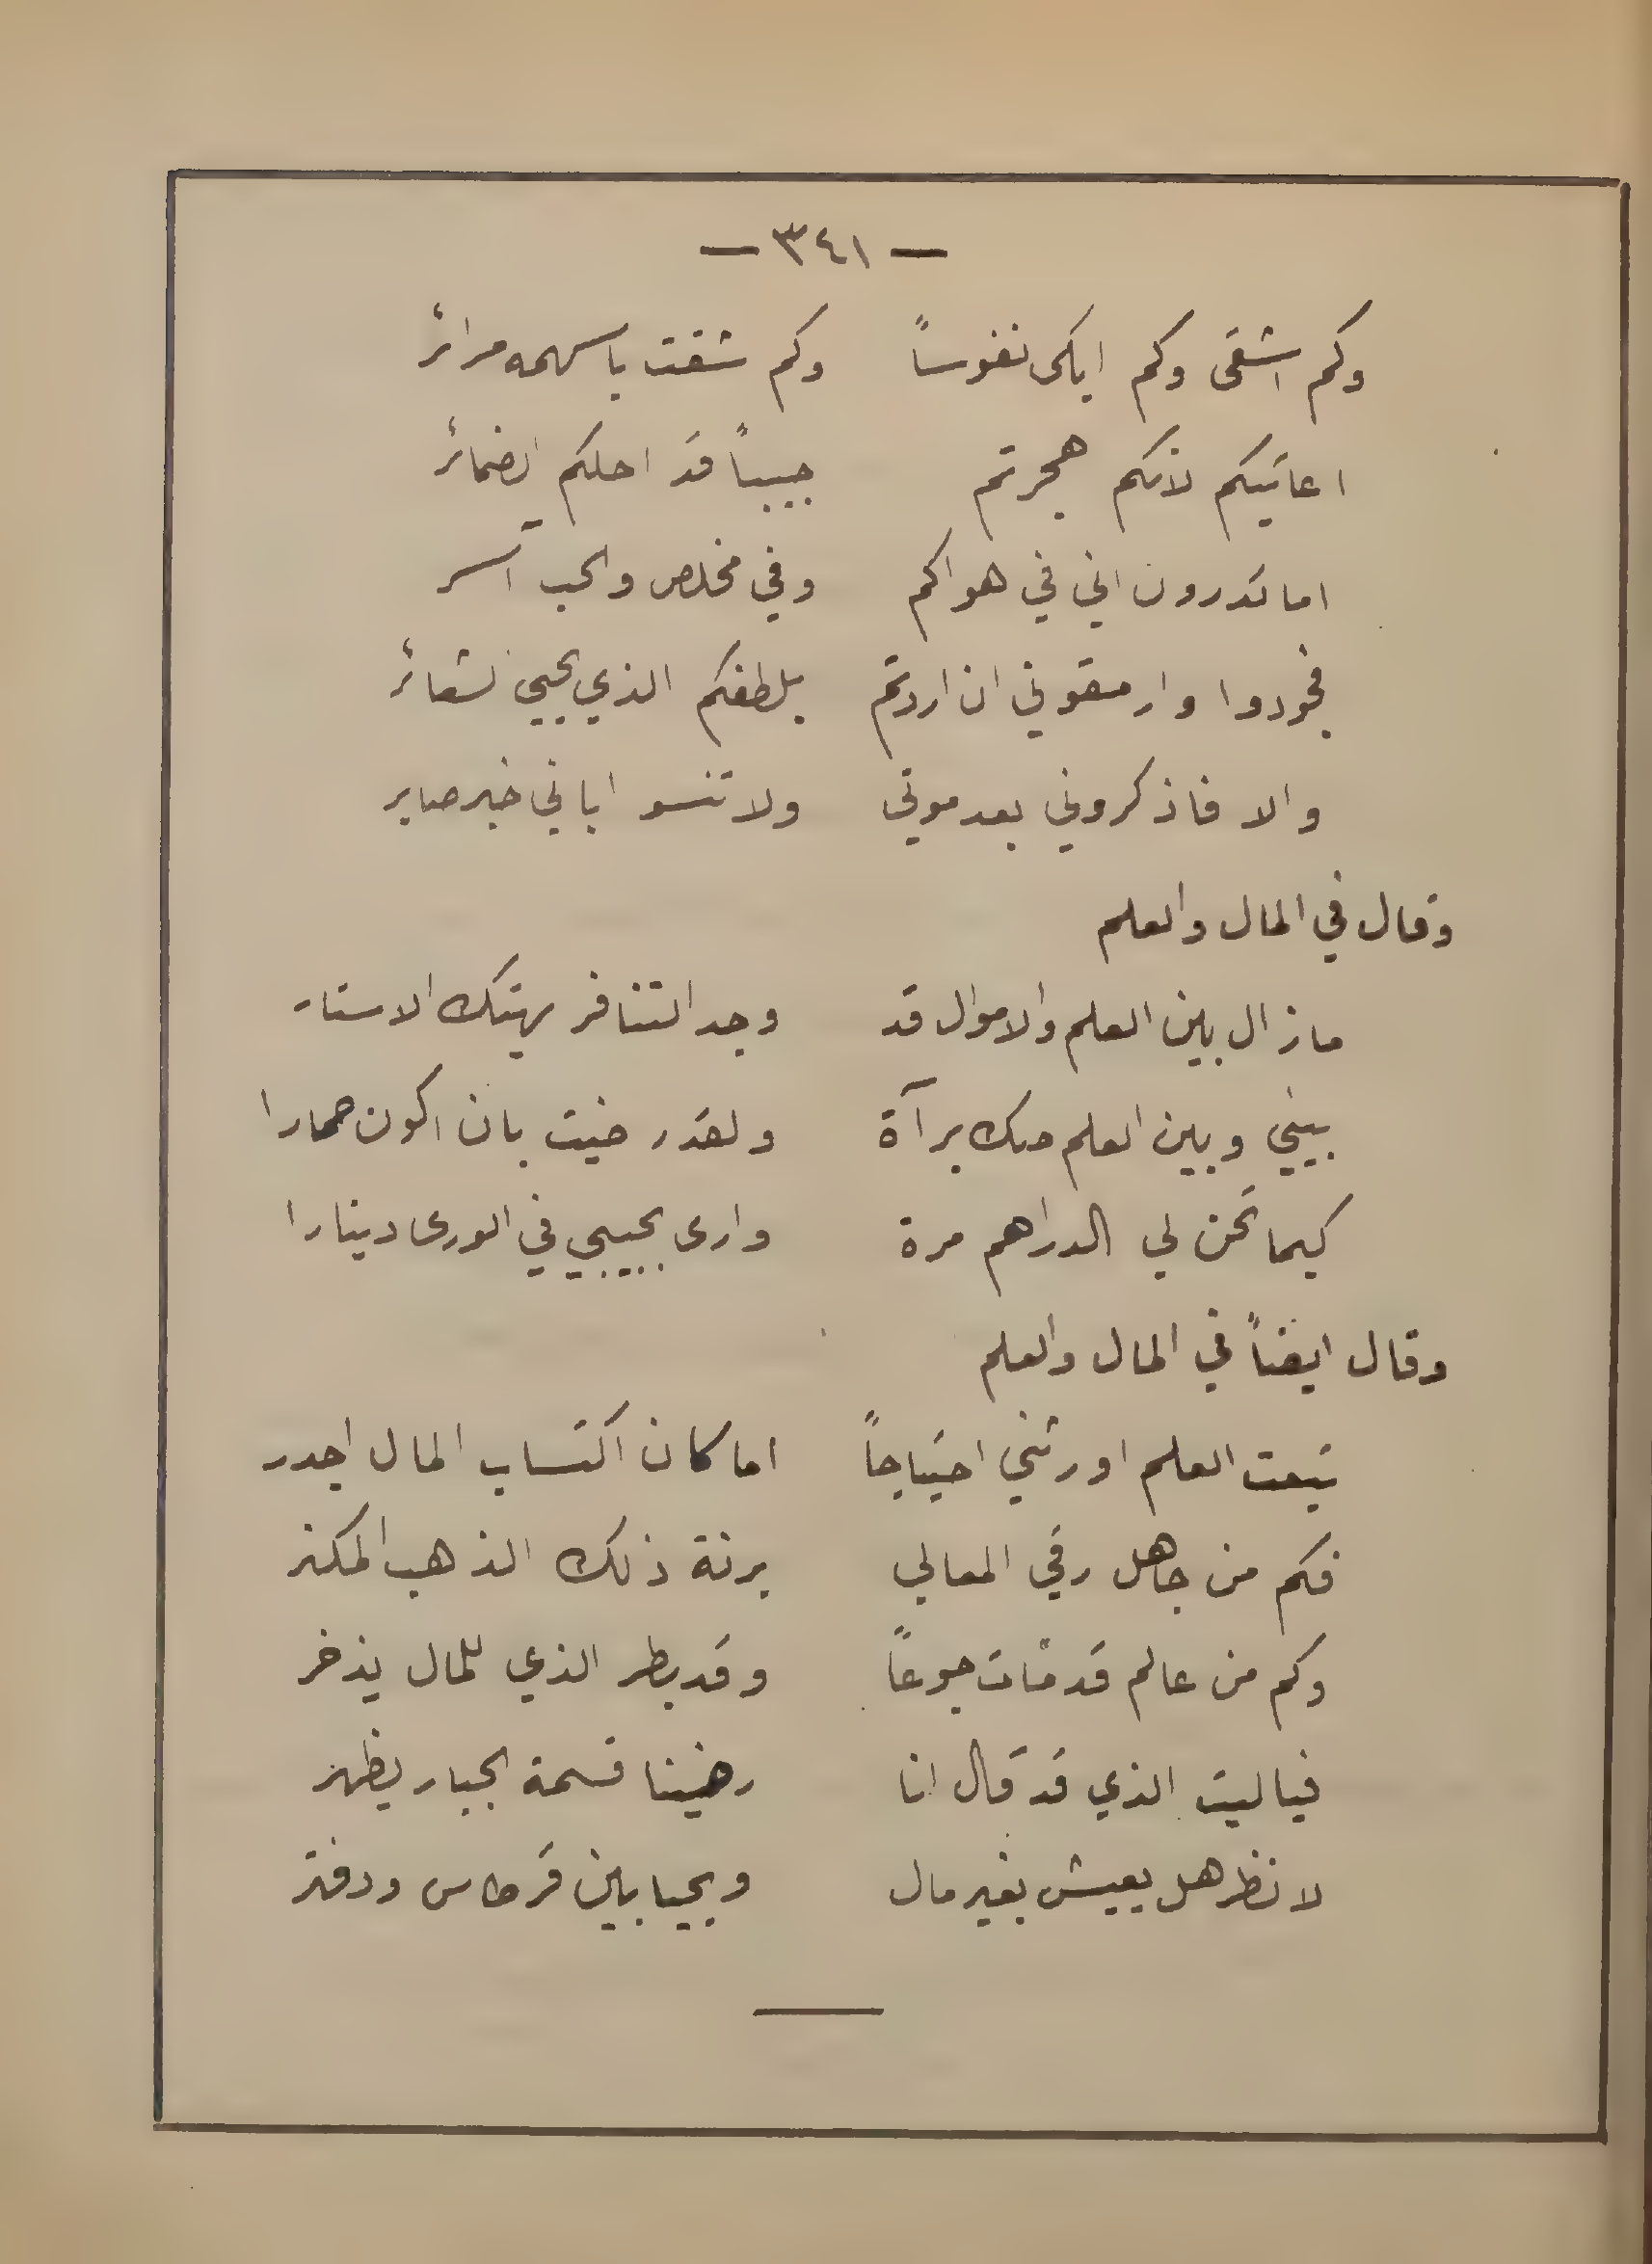 — ٣٤١ —
وكم اشقى وكم ابكى نفوساً وكم شقت باسهمه مرائر
اعاتبكم لانكم هجرتم حبيباً قد احلكم الضمائر
اما تدرون اني في هواكم وفي مخلص والحب آسر
فجودوا وارمقوني ان اردتم بلطفكم الذي يحيي الشعائر
والا فاذكروني بعد موتي ولا تنسوا باني خير صابر
وقال في المال والعلم
مازال بين العلم والاموال قد وجد التنافر يهتك الاستار
بيني وبين العلم صك برآة ولقد رضيت بان اكون حمارا
كيما تحن لي الدراهم مرة وارى بجيبي في الورى دينارا
وقال ايضاً في المال والعلم
تبعت العلم اورثني احتياجاً اما كان اكتساب المال اجدر
فكم من جاهل رقي المعالي برنة ذلك الذهب المكنز
وكم من عالم قد مات جوعاً وقد بطر الذي للمال يذخر
فياليت الذي قد قال انا رضينا قسمة الجبار يظهر
لانظر هل يعيش بغير مال ويحيا بين قرطاس ودفتر